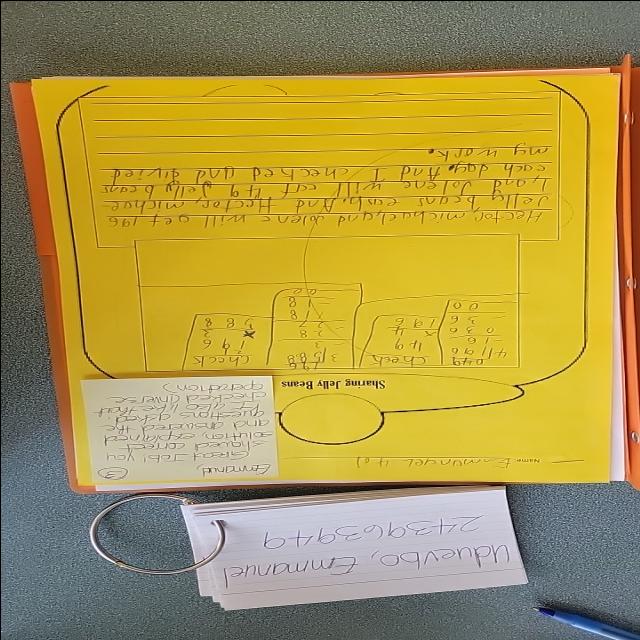 Name: Emmanuel 401
Sharing Jelly Beans
049
4196
16
036
36
00
check
49
x 4
196
196
3588
3
28
27
18
18
00
check
196
x 3
588
Hector, michael, and Jolene will get 196
Jelly beans each. And Hector, michae
l, and Jolene will eat 49 Jelly beans
each day. And I checked and divied
my work.
Emmanuel 3
Great Job! You
showed correct
solution, explained
and answered the
question asked.
I also like that
checked (inverse
operation)
Uduevbo, Emmanuel
243963949